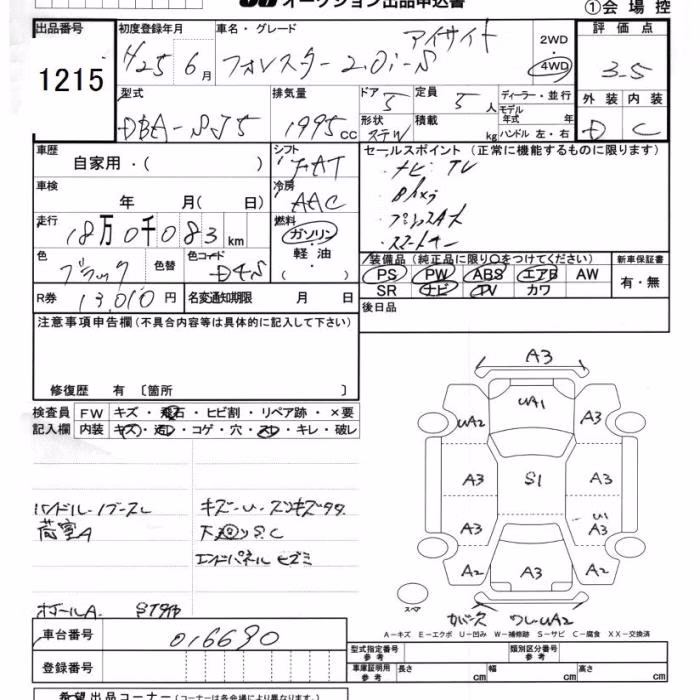 オークション出品申込書
①会場控
出品番号
1215
初度登録年月
H25 6月
車名・グレード
フォレスター 2.0i-S
アイサイト
2WD
・
4WD
評価点
3-5
外装 内装
D C
型式
DBA-SJ5
排気量
1995cc
ドア 5
定員 5人
形状 ステW
積載 kg
ディーラー・並行
モデル
年式 年
ハンドル 左・右
車歴
自家用・( )
シフト
FAT
車検
年 月( 日)
冷房
AAC
走行
18万0千083km
燃料
ガソリン
軽油
・
色
ブラック
色替
色コード
D4S
R券 13,010円
名変通知期限 月 日
セールスポイント(正常に機能するものに限ります)
・ナビ TV
・プッシュスタート
・スマートキー
装備品(純正品に限り○をつけてください)
PS PW ABS エアB AW
SR ナビ TV カワ
新車保証書
有・無
後日品
注意事項申告欄(不具合内容等は具体的に記入して下さい)
修復歴 有 〔箇所 〕
検査員
記入欄
FW キズ・飛石・ヒビ割・リペア跡・×要
内装 キズ・コゲ・穴・スレ・キレ・破レ
荷室A
キズ・U・スリキズ
エンドパネル ヒズミ
A3
UA1
UA2 A3
A3 S1 A3
A3 U1 A3
A2 A3 A2
スペア
UA2
A-キズ E-エクボ U-凹み W-補修跡 S-サビ C-腐食 XX-交換済
車台番号 016690
登録番号
型式指定番号
参考
類別区分番号
参考
車庫証明用
参考
長さ cm 幅 cm 高さ cm
希望出品コーナー(コーナーは各会場により異なります。)